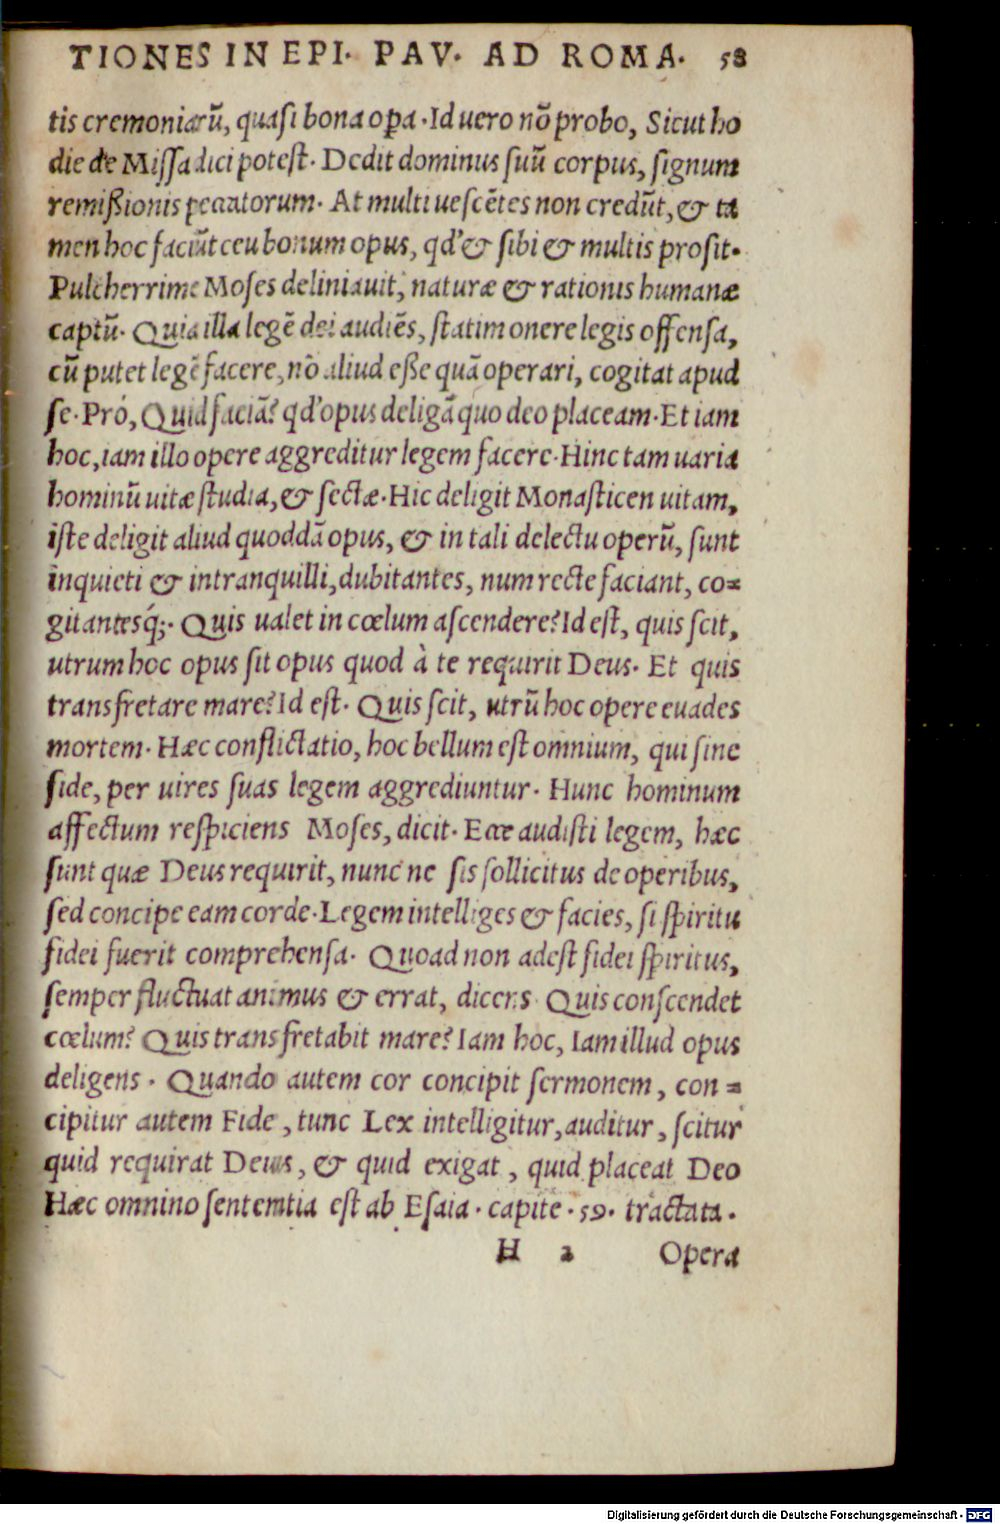 TIONES IN EPI. PAV. AD ROMA. 58
tis cremoniarū, quasi bona opa. Id uero nō probo, Sicut ho
die de Missa dici potest. Dedit dominus suū corpus, signum
remißionis peccatorum. At multi uescētes non credūt, & ta
men hoc faciūt ceu bonum opus, qd' & sibi & multis prosit.
Pulcherrime Moses deliniauit, naturæ & rationis humanæ
captū. Quia illa legē dei audiēs, statim onere legis offensa,
cū putet legē facere, nō aliud eße quā operari, cogitat apud
se. Pró, Quid faciā? qd' opus deligā quo deo placeam. Et iam
hoc, iam illo opere aggreditur legem facere. Hinc tam uaria
hominū uitæ studia, & sectæ. Hic deligit Monasticen uitam,
iste deligit aliud quoddā opus, & in tali delectu operū, sunt
inquieti & intranquilli, dubitantes, num recte faciant, co=
gitantesq́;. Quis ualet in cœlum ascendere? Id est, quis scit,
utrum hoc opus sit opus quod à te requirit Deus. Et quis
transfretare mare? Id est. Quis scit, utrū hoc opere euades
mortem. Hæc conflictatio, hoc bellum est omnium, qui sine
fide, per uires suas legem aggrediuntur. Hunc hominum
affectum respiciens Moses, dicit. Ecce audisti legem, hæc
sunt quæ Deus requirit, nunc ne sis sollicitus de operibus,
sed concipe eam corde. Legem intelliges & facies, si spiritu
fidei fuerit comprehensa. Quoad non adest fidei spiritus,
semper fluctuat animus & errat, dicens Quis conscendet
cœlum? Quis transfretabit mare? Iam hoc, Iam illud opus
deligens. Quando autem cor concipit sermonem, con=
cipitur autem Fide, tunc Lex intelligitur, auditur, scitur
quid requirat Deus, & quid exigat, quid placeat Deo
Hæc omnino sententia est ab Esaia. capite. 59. tractata.
H 2 Opera
Digitalisierung gefördert durch die Deutsche Forschungsgemeinschaft - DFG